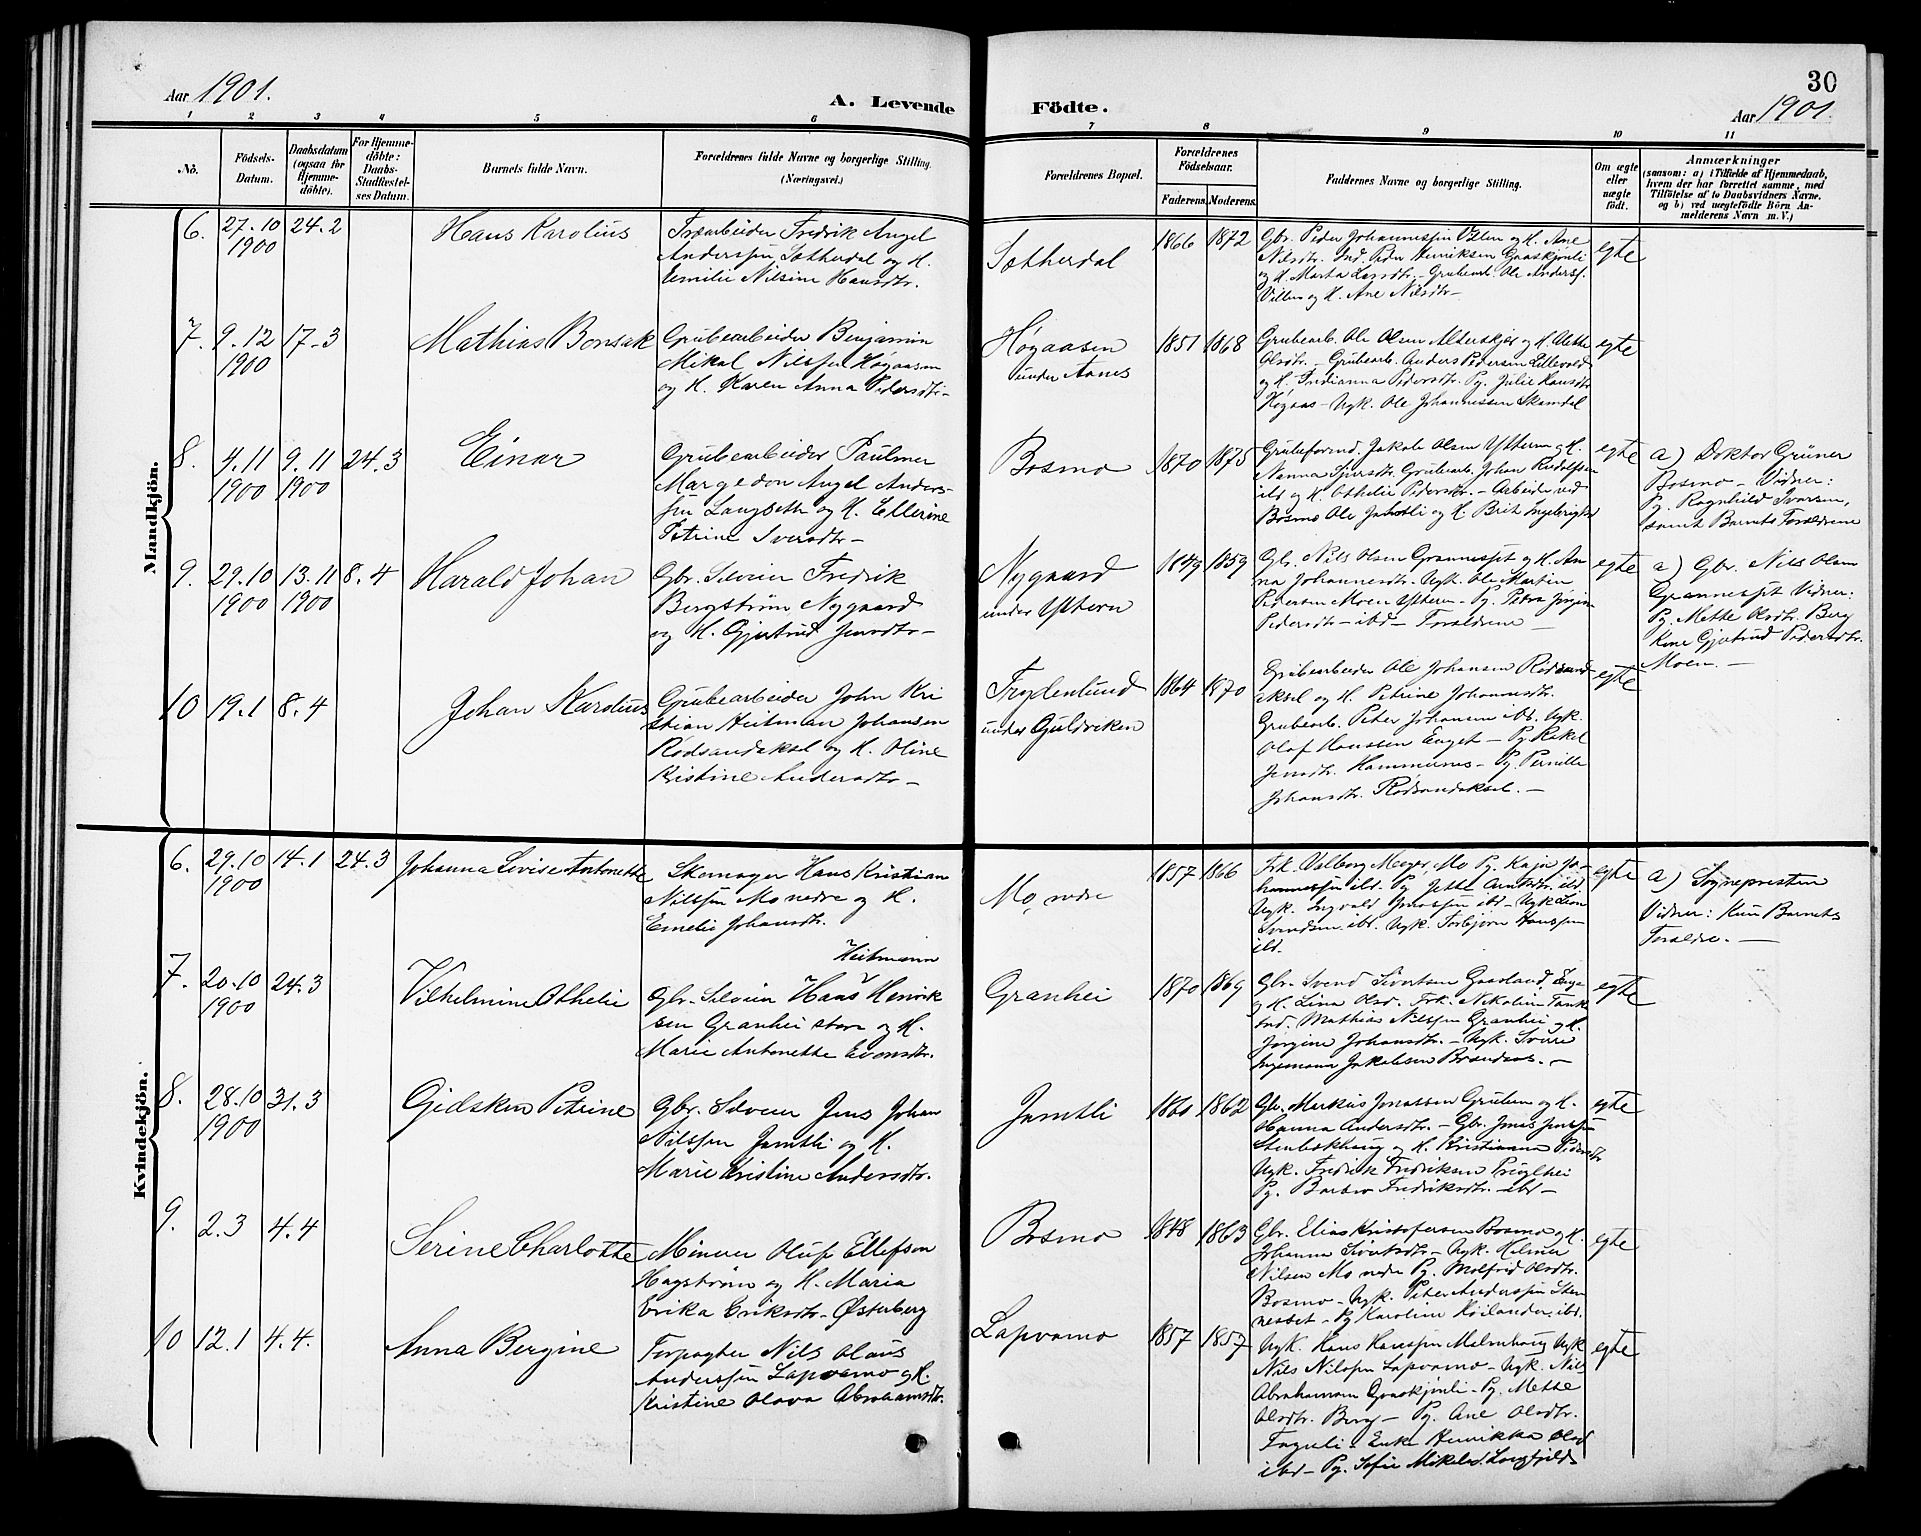 30
Aar 1901.
A. Levende Födte.
Aar 1901.
1 2 3 4 5 6 7 8 9 10 11
No.
Födsels-Datum.
Daabsdatum (ogsaa for Hjemmedöbte).
For Hjemmedöbte: Daabs-Stadfæstelses Datum.
Barnets fulde Navn.
Forældrenes fulde Navne og borgerlige Stilling.
(Næringsvei.)
Forældrenes Bopæl.
Forældrenes Födselsaar.
Faderens. Moderens.
Faddernes Navne og borgerlige Stilling.
Om ægte eller uægte födt.
Anmærkninger
(saasom: a) i Tilfælde af Hjemmedaab,
hvem der har forrettet samme, med
Tilföielse af to Daabsvidners Navne,
og b) ved uægtefödte Börn Anmelderens Navn m. V.)
Mandkjön.
6. 27.10 1900 24.2
Hans Karolius
Træarbeider Fredrik Angel
Anderssen Sætherdal og H.
Emilie Nilsine Hansdtr.
Sætherdal
1866 1872
Gbr. Peder Johannessen og H. Ane
Nilsdtr. Ind. Peder Henriksen Graakjønli
og H. Marta Larsdtr. - Grubearb. Ole Anderss.
og H. Ane Nilsdtr -
egte
7. 9.12 1900 17.3
Mathias Bonsak
Grubearbeider Benjamin
Mikal Nilssen Høgaasen
og H. Karen Anna Pedersdtr -
Høgaasen
under Aanes
1851 1868
Grubearb. Ole Olsen Alterskjær og H. Mette
Olsdtr. - Grubearb. Anders Pedersen Lillevold
og H. Indianna Pedersdtr. Pg. Julie Hansdtr
Høgaas - Ugk. Ole Johannessen Skamdal
egte
8. 4.11 1900 9.11 1900 24.3
Einar
Grubearbeider Paulmer
Margedon Angel Anders-
sen Langseth og H. Ellerine
Petrine Iversdtr -
Bosmo
1870 1875
Grubeformd. Jakob Olsen Ytteren og H.
Nanna Sjursdtr. Grubearb. Johan Rudolfsen
ibd og H. Othelie Pedersdtr. - Arbeider ved
Bosmo Ole Jamtli og H. Brit Ingebrigtsd
egte
a) Doktor Grüner
Bosmo - Vidner:
Pg. Ragnhild Ivarsen,
samt Barnets Forældrene
9. 29.10 1900 13.11 1900 8.4
Harald Johan
Gbr. Selveier Fredrik
Bergstrøm Nygaard
og H. Gjertrud Jensdtr -
Nygaard
under Ytteren
1849 1859
Gbr. Nils Olsen Grannesset og H. An-
na Johannesdtr. Ugk. Ole Martin
Pedersen Moen Ytteren - Pg. Petra Jørgine
Pedersdtr - ibd - Forældrene -
egte
a) Gbr. Nils Olsen
Grannesset Vidner:
Pg. Mette Olsdtr. Berg
Kone Gjertrud Pedersdtr.
Moen. -
10 19.1 8.4
Johan Karolius
Grubearbeider John Kri
stian Heitman Johansen
Rødsandaksel og H. Oline
Kristine Andersdtr -
under Guldviken
1864 1870
Grubearbeider Ole Johansen Rødsand-
aksel og H. Petrine Johannsdtr.
Grubearb. Peter Johansen ibd. Ugk.
Olaf Hanssen Enget - Pg. Rakel
Jensdtr. Hammernes - Pg. Pernille
Johansdtr. Rødsandaksel. -
egte
Kvindekjön.
6. 29.10 1900 14.1 24.3
Johanna Lovise Antonette
Skomager Hans Kristian
Nilssen Mo nedre og H.
Emelie Johansdtr.
Mo, nedre
1857 1866
Frk. Valborg Meyer, Mo Pg. Kaja Jo-
hannessen ibd. Pg Jette Arntsdtr. ibd
Ugk. Ingvald Jenssen ibd - Ugk
Svendsen ibd. Ugk. Torbjørn Hanssen
ibd.
egte
a) Sognepresten
Vidner: Kun Barnets
Forældre. -
7. 20.10 1900 24.3
Vilhelmine Othelie
Heitmann
Gbr. Selveier Hans Henrik
sen Granhei store og H.
Marie Antonette Evensdtr.
Granhei
1870 1869
Gbr. Svend Sivertsen
og H. Lina Olsd. Frk. Nikoline Tank
Ind. Mathias Nilssen Granhei og H.
Jørgine Johansdtr. - Ugk. Sverre
Ingemann Jakobsen -
egte
8. 28.10 1900 31.3
Gidsken Petrine
Gbr. Selveier Jens Johan
Nilssen Jamtli og H.
Marie Kristine Andersdtr.
Jamtli
1860 1862
Gbr. Markus Jonassen Gruben og H.
Hanna Andersdtr. - Gbr. Jens Jenssen
Stenbekhaug og H. Kristianna Pedersdtr
Ugk. Fredrik Fredriksen
Pg. Barbro Fredriksdtr. - ibd -
egte
9. 2.3 4.4
Serine Charlotte
Minerer Oluf Ellefsen
Hagstrøm og H. Maria
Erika Eriksdtr. Østerberg
Bosmo
1848 1863
Gbr. Elias Kristofersen Bosmo og H.
Johanna Sivertsdtr - Ugk. Hilmer
Nilsen Mo nedre Pg. Molfrid Olsdtr.
Bosmo - Ugk. Peter Anderssen Sten-
nesset - Pg Karoline Høilander. ibd.
egte
10 12.1 4.4.
Anna Bergine
Forpagter Nils Olaus
Anderssen Lapvamo og H.
Kristine Olava Abrahamsdtr.
Lapvamo
1857 1857
Ugk. Hans Hanssen Malmhaug Ugk
Nils Nilssen Lapvamo - Ugk. Nils
Abrahamsen Graakjønli - Pg. Mette
Olsdtr. Berg - Pg. Ane Olsdtr.
Fagerli - Enke Henrikka Olsd
ibd - Pg. Sofie Mikelsd. Langfjeld
egte